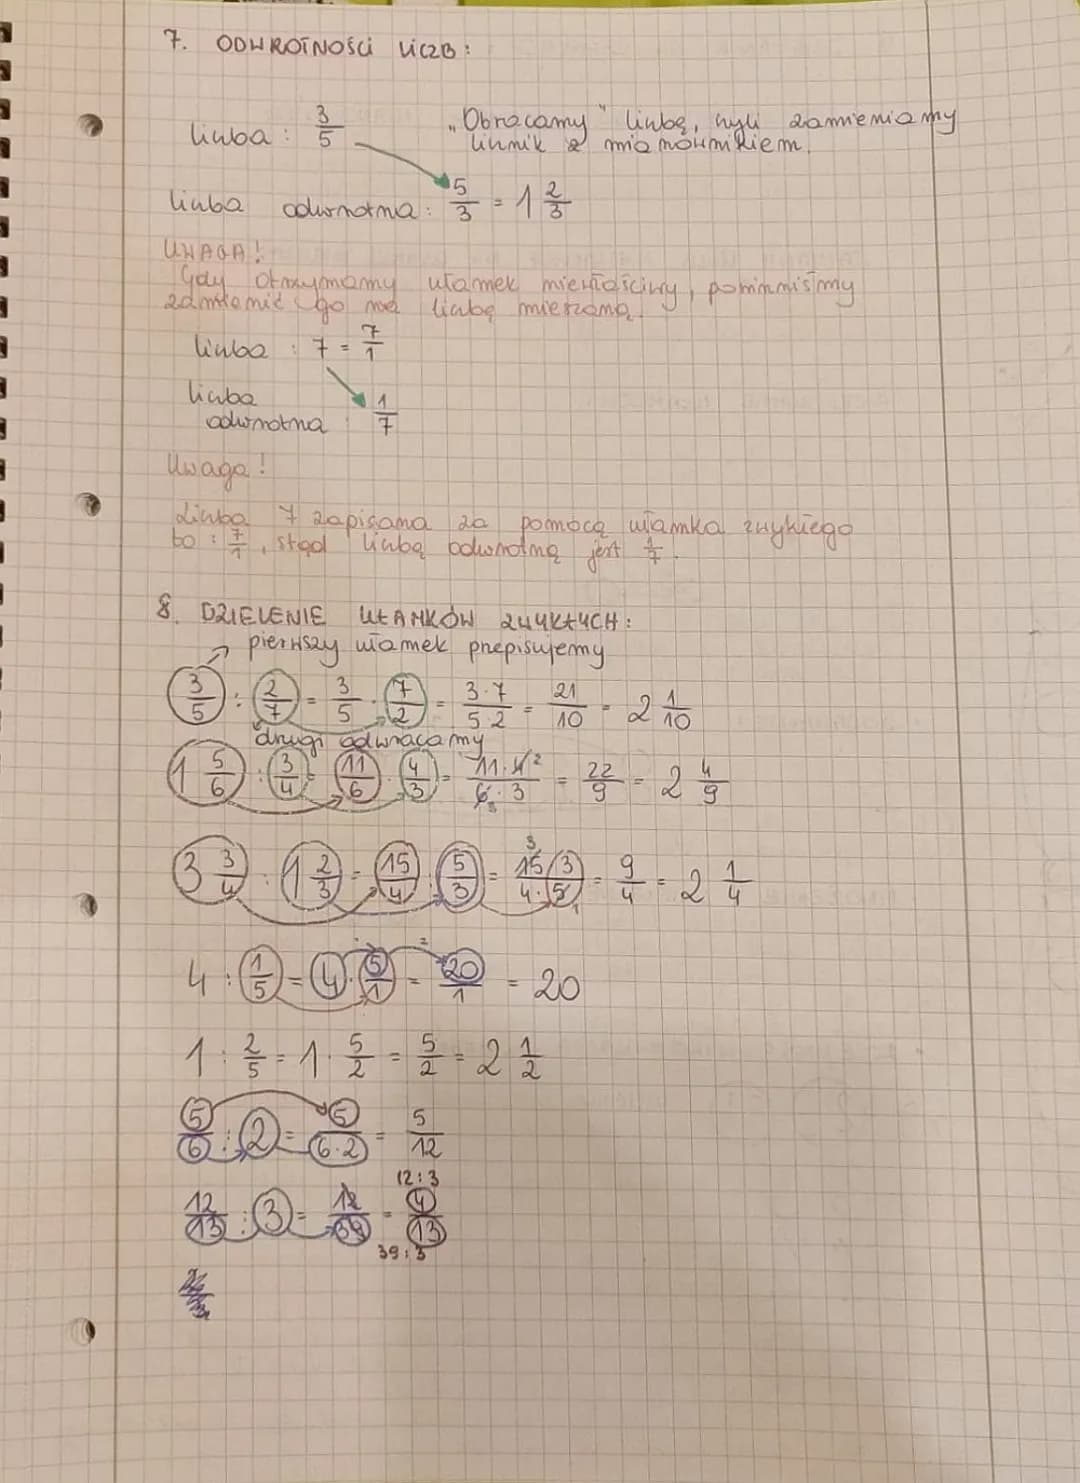 7. ODWROTNOŚCI LICZB:
liczba: 3/5 „Obracamy" liczbę, czyli zamieniamy
licznik z mianownikiem.
liczba odwrotna: 5/3 = 1 2/3
UWAGA!
Gdy otrzymamy ułamek niewłaściwy, powinniśmy
zamienić go na liczbę mieszaną.
liczba: 7 = 7/1
liczba
odwrotna: 1/7
Uwaga!
Liczba 7 zapisana za pomocą ułamka zwykłego
to: 7/1, stąd liczbą odwrotną jest 1/7.
8. DZIELENIE UŁAMKÓW ZWYKŁYCH:
pierwszy ułamek przepisujemy
3/5 : 2/7 = 3/5 · 7/2 = 3·7/5·2 = 21/10 = 2 1/10
drugi odwracamy
1 5/6 : 3/4 = 11/6 · 4/3 = 11·4 2/6 3·3 = 22/9 = 2 4/9
3 3/4 : 1 2/3 = 15/4 · 5/3 = 3 15/3 / 4·5 1 = 9/4 = 2 1/4
4 : 1/5 = 4 · 5/1 = 20/1 = 20
1 : 2/5 = 1 · 5/2 = 5/2 = 2 1/2
5/6 : 2 = 5/6·2 = 5/12
12:3
12/13 : 3 = 12/39 = 4/13
39:3